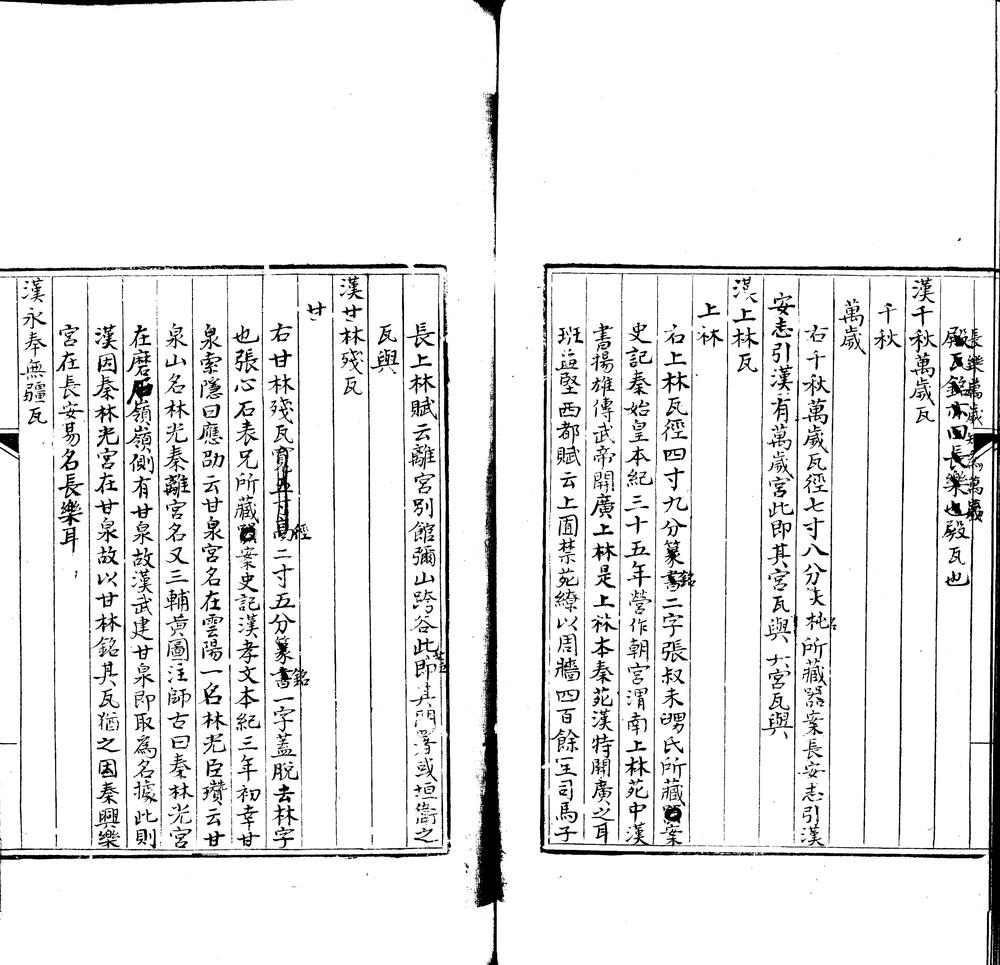 殿瓦銘亦曰長樂也殿瓦也
漢千秋萬歲瓦
千秋
萬歲
右千秋萬歲瓦徑七寸八分所藏器案長安志引漢
安志引漢有萬歲宮此即其宮瓦與宮瓦與
漢上林瓦
上林
右上林瓦徑四寸九分篆書銘二字張叔未舅氏所藏案
史記秦始皇本紀三十五年營作朝宮渭南上林苑中漢
書揚雄傳武帝開廣上林是上林本秦苑漢特開廣之耳
班孟堅西都賦云上囿禁苑繚以周牆四百餘里司馬子
長上林賦云離宮別館彌山跨谷此即其門署或垣衛之
瓦與
漢甘林殘瓦
甘
右甘林殘瓦徑二寸五分篆書銘一字蓋脫去林字
也張心石表兄所藏案史記漢孝文本紀三年初幸甘
泉索隱曰應劭云甘泉宮名在雲陽一名林光臣瓚云甘
泉山名林光秦離宮名又三輔黃圖注師古曰秦林光宮
在磨石嶺嶺側有甘泉故漢武建甘泉即取為名據此則
漢因秦林光宮在甘泉故以甘林銘其瓦猶之因秦興樂
宮在長安易名長樂耳
漢永奉無疆瓦